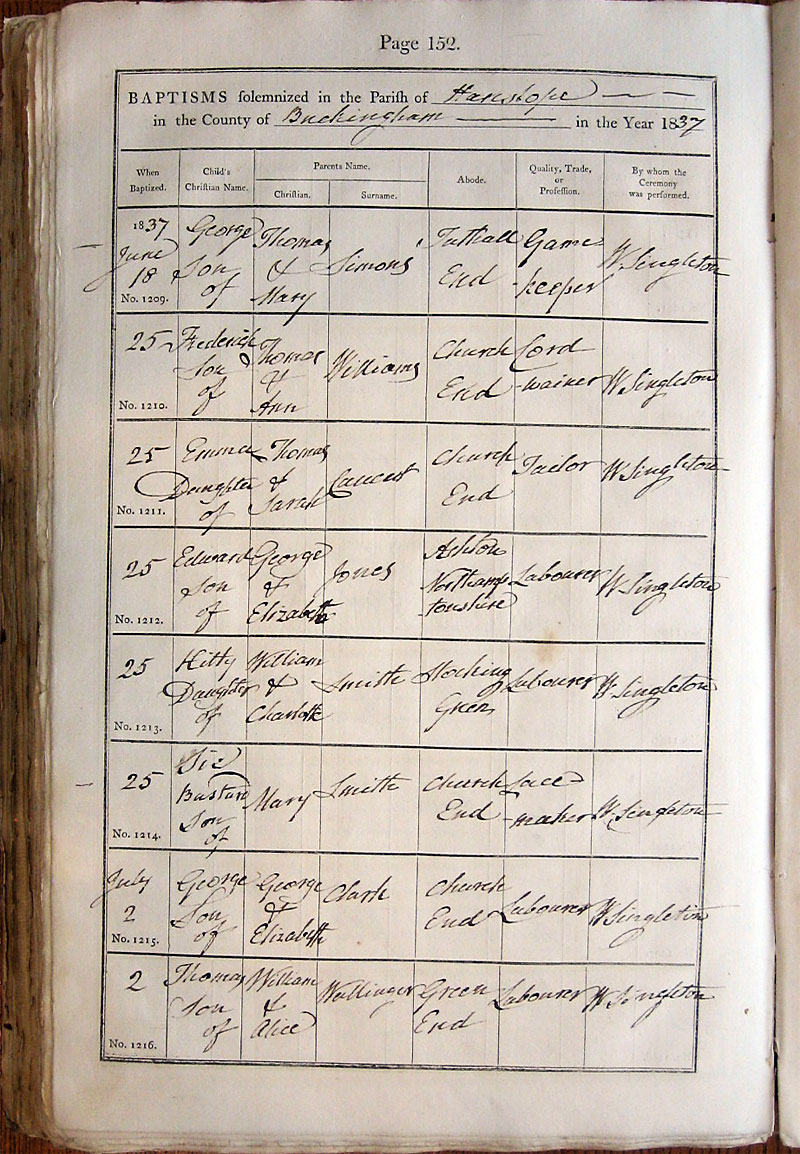 Page 152.
BAPTISMS solemnized in the Parish of Hanslope
in the County of Buckingham in the Year 1837
When Baptized.
Child's Christian Name.
Parents Name.
Christian.
Surname.
Abode.
Quality, Trade, or Profession.
By whom the Ceremony was performed.
1837 June 18 No. 1209.
George Son of
Thomas & Mary
Simons
Tathall End
Game -keeper
W Singleton
25 No. 1210.
Frederick Son of
Thomas & Ann
Williams
Church End
Cord -wainer
W Singleton
25 No. 1211.
Emma Daughter of
Thomas & Sarah
Church End
Tailor
W Singleton
25 No. 1212.
Edward Son of
George & Elizabeth
Jones
Ashton Northamp tonshire
Labourer
W Singleton
25 No. 1213.
Kitty Daughter of
William & Charlotte
Smith
Stocking Green
Labourer
W Singleton
25 No. 1214.
Son of
Mary
Smith
Church End
Lace -maker
W Singleton
July 2 No. 1215.
George Son of
George & Elizabeth
Clark
Church End
Labourer
W Singleton
2 No. 1216.
Thomas Son of
William & Alice
Wallinger
Green End
Labourer
W Singleton